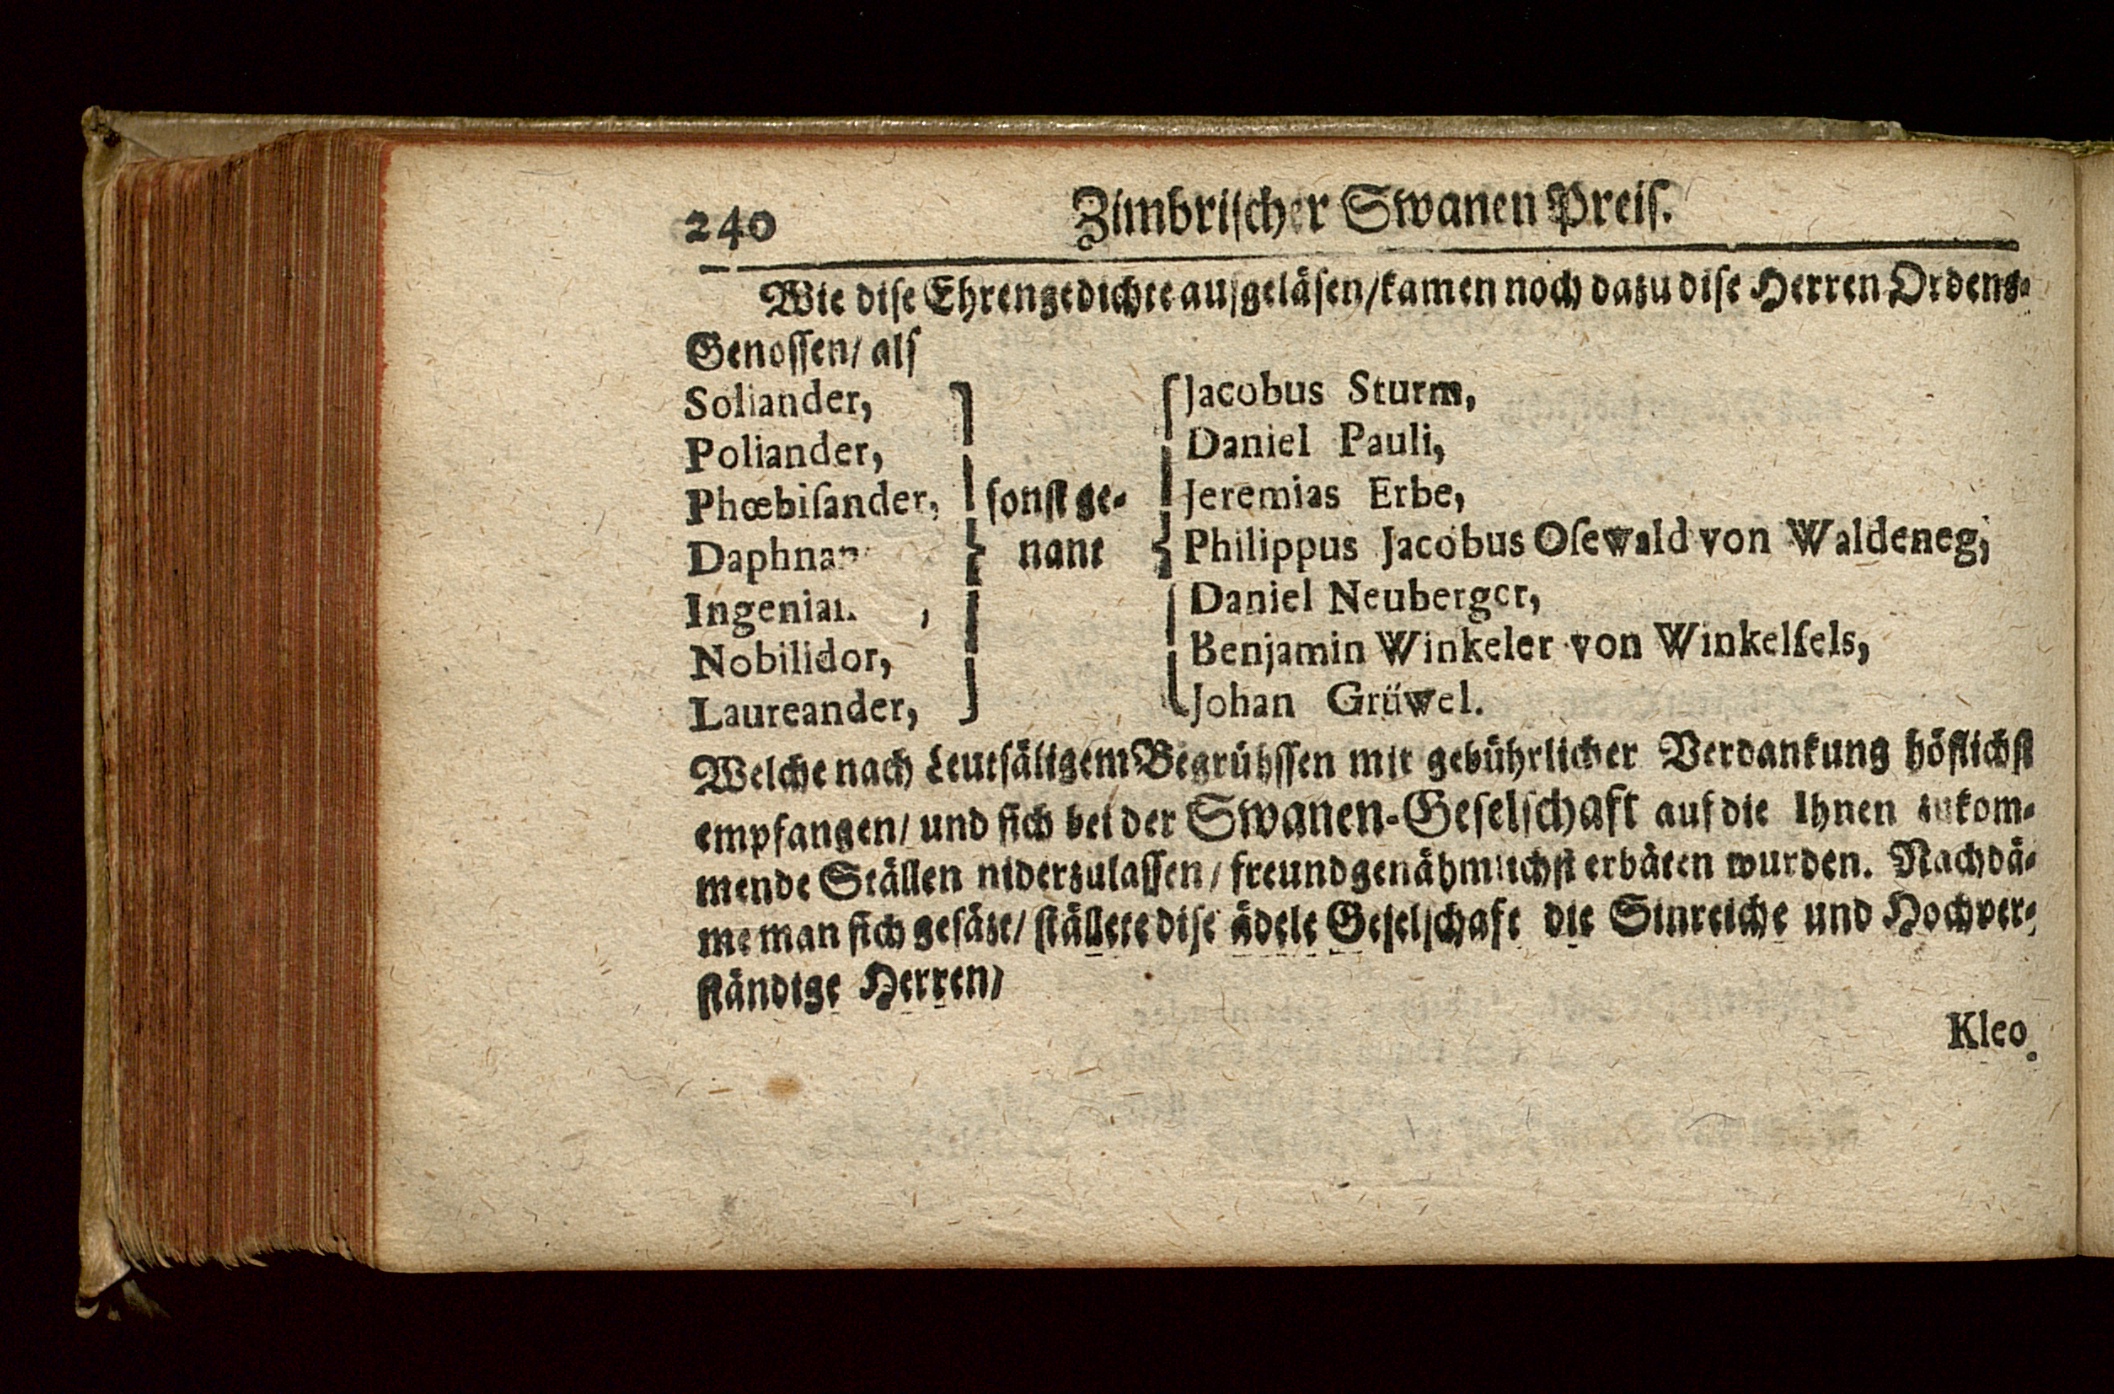 240 Zimbrischer Swanen Preiſ.
Wie diſe Ehrengedichte auſgeläſen/kamen noch dazu diſe Herren Ordens-
Genoſſen/ alſ
Soliander, Jacobus Sturm,
Poliander, Daniel Pauli,
Phœbiſander, ſonſt ge- Jeremias Erbe,
nant Philippus Jacobus Oſewald von Waldeneg,
Daniel Neuberger,
Nobilidor, Benjamin Winkeler von Winkelfels,
Laureander, Johan Grüwel.
Welche nach Leutſäligem Begrühſſen mit gebührlicher Verdankung höflichſt
empfangen/ und ſich bei der Swanen-Geſelſchaft auf die Ihnen zukom-
mende Ställen niderzulaſſen/ freundgenähmlichſt erbäten wurden. Nachdä-
me man ſich geſäzt/ ſtällete diſe ädele Geſelſchaft die Sinreiche und Hochver-
ſtändige Herren/
Kleo